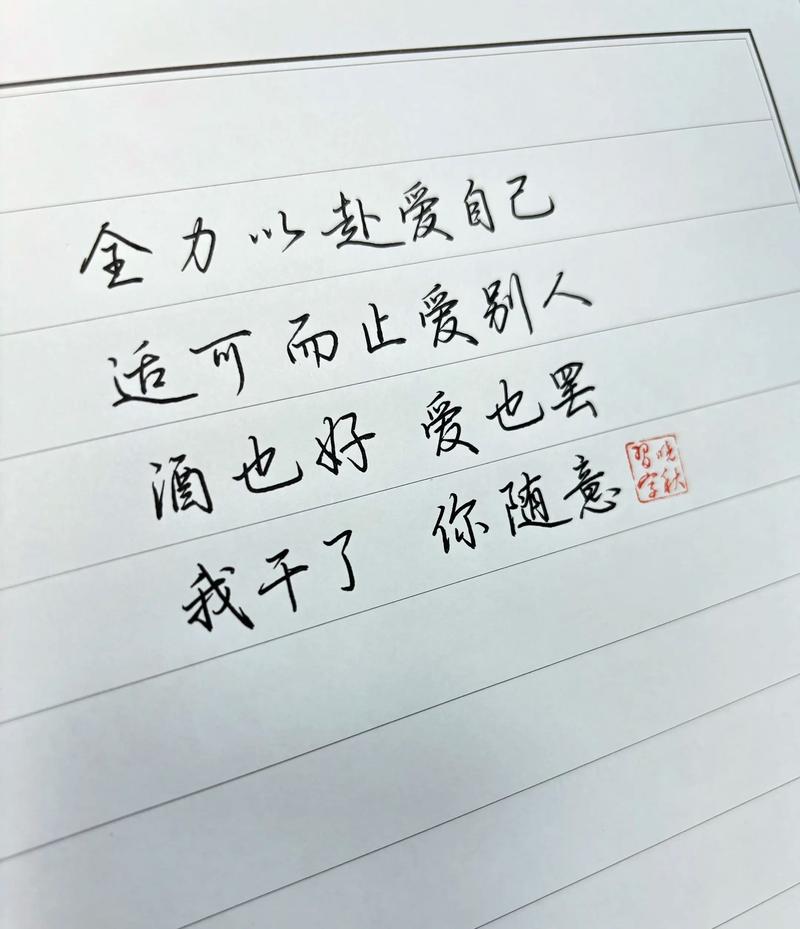 全力以赴爱自己
适可而止爱别人
酒也好 爱也罢
我干了 你随意
晓秋习字